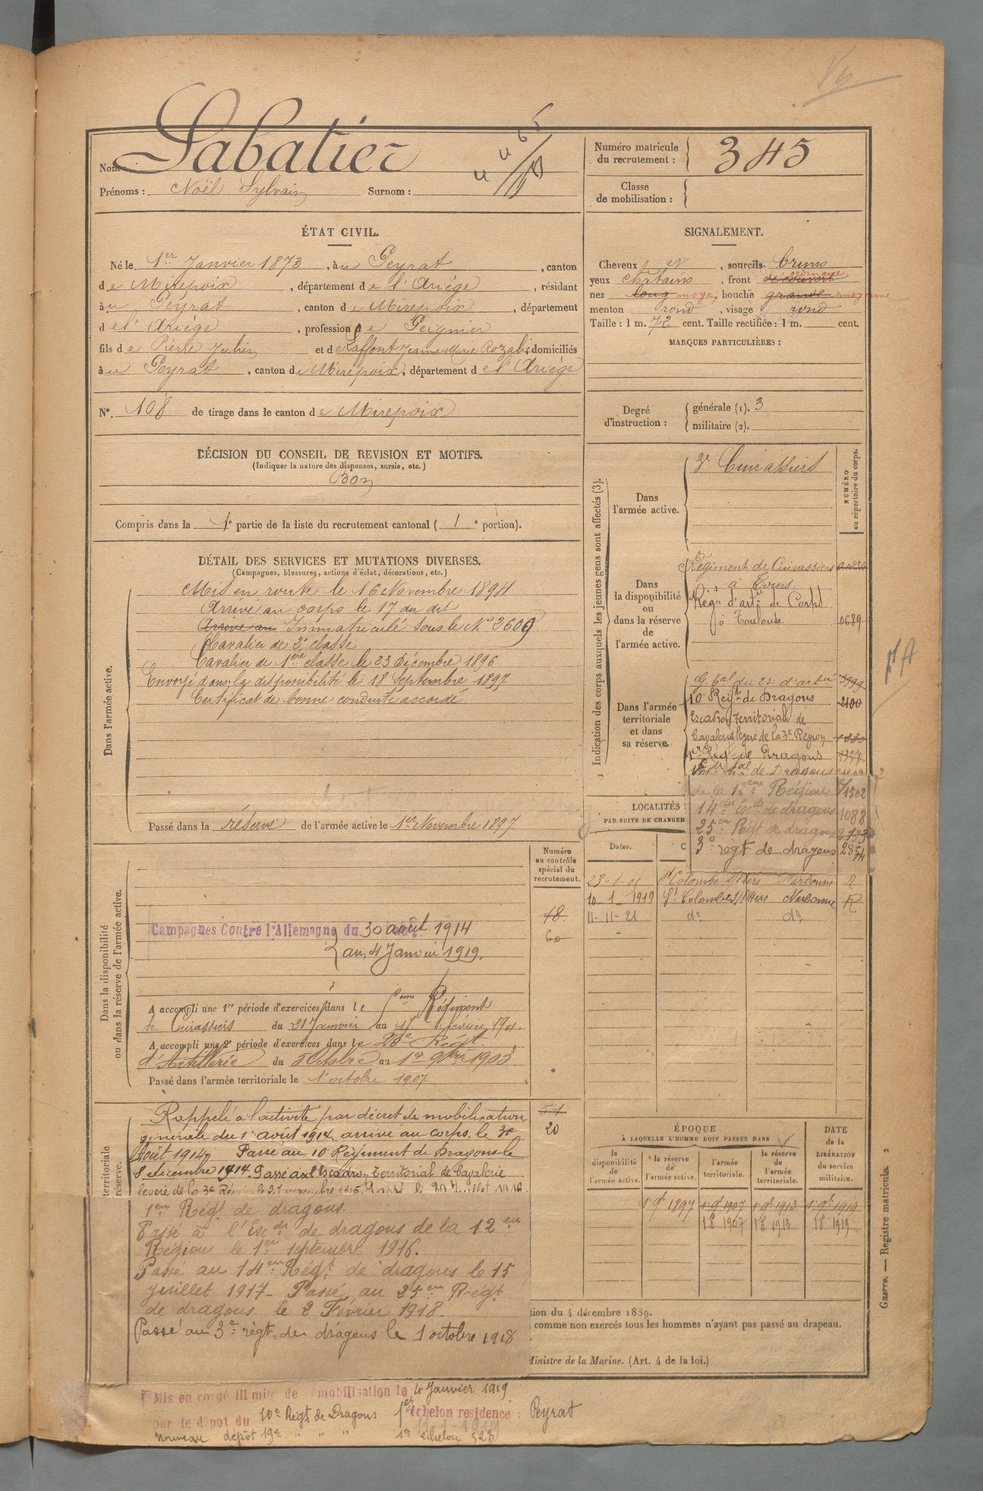 Nom: Sabatier
Prénoms: Noël Sylvain Surnom:
Numéro matricule du recrutement: 345
Classe de mobilisation:
ÉTAT CIVIL.
Né le 1er Janvier 1873, à u Peyrat, canton
d e Mirepoix, département d e l'Ariège, résidant
à u Peyrat, canton d e Mirepoix, département
d e l'Ariège, profession d e Peignier
fils d e Pierre Julien et d e Laffont Jeanne Marie Rozalie domiciliés
à u Peyrat, canton d e Mirepoix, département d e l'Ariège
N°. 108 de tirage dans le canton d e Mirepoix
SIGNALEMENT.
Cheveux, sourcils bruns
yeux châtains, front
nez long moyen bouche grande moyenne
menton rond, visage rond
Taille: 1 m. 72 cent. Taille rectifiée: 1 m. cent.
MARQUES PARTICULIÈRES:
Degré d'instruction: générale (1). 3
militaire (2).
DÉCISION DU CONSEIL DE REVISION ET MOTIFS.
(Indiquer la nature des dispenses, sursis, etc.)
Bon
Compris dans la 1e partie de la liste du recrutement cantonal (1e portion).
DÉTAIL DES SERVICES ET MUTATIONS DIVERSES.
(Campagnes, blessures, actions d'éclat, décorations, etc.)
Dans l'armée active.
Mis en route le 16 Novembre 1894
Arrivé au corps le 17 du dit
Arrivé au Immatriculé sous le N° 2609
Cavalier de 2e classe
Cavalier de 1ère classe le 23 Décembre 1896
Envoyé dans la disponibilité le 18 Septembre 1897
Certificat de bonne conduite accordé
Passé dans la réserve de l'armée active le 1er Novembre 1897
Indication des corps auxquels les jeunes gens sont affectés (3).
NUMÉRO au répertoire du corps.
Dans l'armée active.
3e Cuirassiers
Dans la disponibilité ou dans la réserve de l'armée active.
Régiment de Cuirassiers
à Tours
Régt d'artie de Corps
à Toulouse 0689
Dans l'armée territoriale et dans sa réserve.
10 Régt de Dragons 2100
Escadron Territorial de
Cavalerie légère de la 3e Région
1er Rég. de Dragons
de la 12ème Région 4502
14eme Régt de dragons 1088
25e Régt de dragons
3e regt de dragons
LOCALITÉS
PAR SUITE DE CHANGEM
Dates.
Ste Colombe s/ l'Hers Narbonne R
10-1-1919 Ste Colombe s/ l'Hers Narbonne R
11-11-21 do do
Numéro au contrôle spécial du recrutement.
18
60
Dans la disponibilité ou dans la réserve de l'armée active.
Campagnes Contre l'Allemagne du 30 août 1914
au 4 Janvier 1919.
A accompli une 1re période d'exercices dans le Régiment
de Cuirassiers du 21 Janvier au
A accompli une 2e période d'exercices dans le 23e Régt
d'Artillerie du 5 Octobre au 1er 9bre 1903
Passé dans l'armée territoriale le 1 octobre 1907
territoriale
réserve.
Rappelé à l'activité par décret de mobilisation
générale du 1er août 1914, arrivé au corps le
Août 1914. Passé au 10 Régiment de Dragons le
8 décembre 1914. Passé au Escadron Territorial de Cavalerie
légère de la 3e
1er Régt. de dragons
Passé à l'Esc de dragons de la 12eme
Région le 1er septembre 1916.
Passé au 14eme Régt. de dragons le 15
juillet 1917. Passé au 25eme Régt
de dragons le 2 Février 1918.
Passé au 3e régt. de dragons le 1 octobre 1918
20
ÉPOQUE
À LAQUELLE L'HOMME DOIT PASSER DANS
la disponibilité de l'armée active.
la réserve de l'armée active.
l'armée territoriale.
la réserve de l'armée territoriale.
DATE de la LIBÉRATION du service militaire.
1 9b 1897 1 9b 1907 1 9b 1913 1 9b 1919
tion du 4 décembre 1889.
comme non exercés tous les hommes n'ayant pas passé au drapeau.
Ministre de la Marine. (Art. 4 de la loi.)
Guerre. — Registre matricule. 2
Mis en congé illimité de démobilisation le 4 Janvier 1919
par le dépôt du 10e Régt de Dragons 1er Echelon résidence: Peyrat
nouveau dépôt 19e " " " 1e échelon